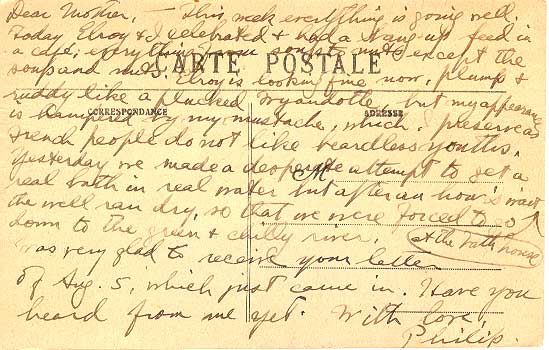 Dear Mother, — This week everything is going well.
Today Elroy & I celebrated & had a bang-up feed in
a cafe; everything from soup to nuts except the
soup and nuts. Elroy is looking fine now, plump &
CARTE POSTALE
ruddy like a plucked Wyandotte, but my appearance
CORRESPONDANCE
ADRESSE
is hampered by my mustache, which I preserve as
French people do not like beardless youths.
Yesterday we made a desperate attempt to get a
M
real bath in real water but after an hour's wait
at the bath house
the well ran dry, so that we were forced to go
down to the green & chilly river.
I was very glad to receive your letter
of Aug. 5, which just came in. Have you
heard from me yet. With love,
Philip.